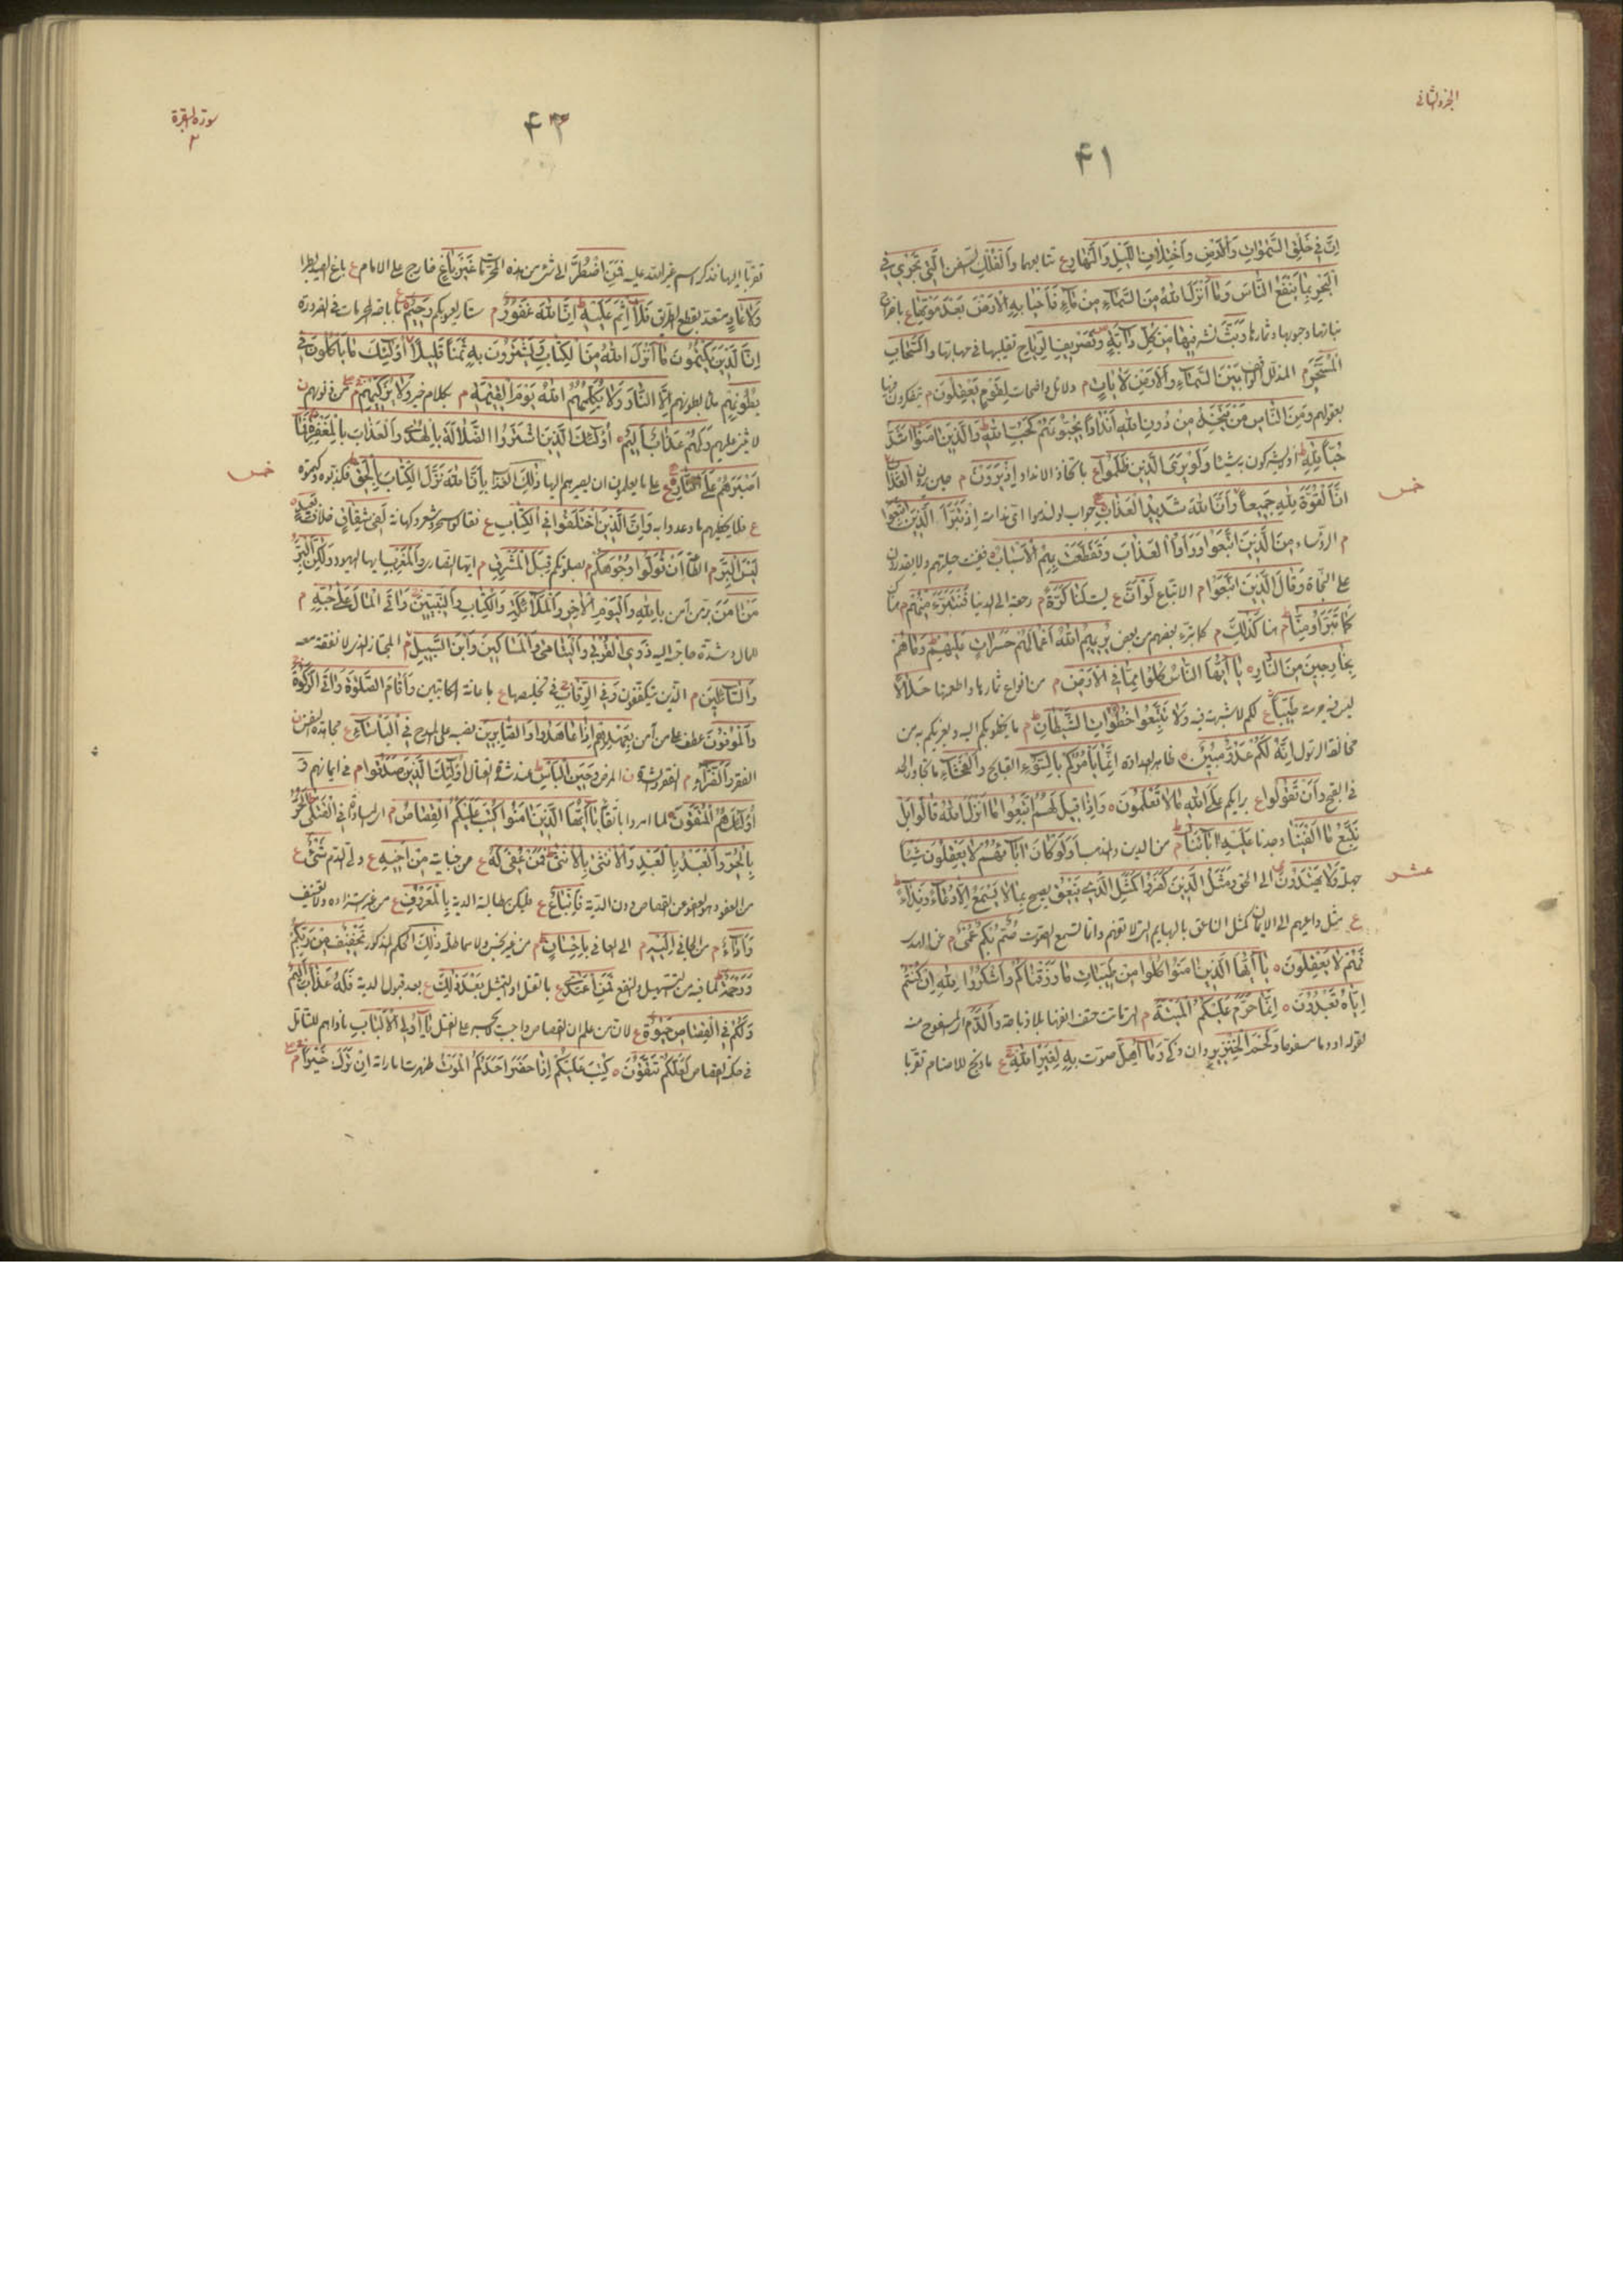 الجزء الثاني
۴۱
اِنَّ فِي خَلْقِ السَّمٰوَاتِ وَالْاَرْضِ وَاخْتِلَافِ اللَّيْلِ وَالنَّهَارِ ع تتابعهما وَالْفُلْكِ السفن الَّتِي تَجْرِي فِي
الْبَحْرِ بِمَا يَنْفَعُ النَّاسَ وَمَا اَنْزَلَ اللّٰهُ مِنَ السَّمَاءِ مِنْ مَاءٍ فَاَحْيَا بِهِ الْاَرْضَ بَعْدَ مَوْتِهَا ع
نباتها وحبوبها وثمارها وَبَثَّ نشر فِيهَا مِنْ كُلِّ دَابَّةٍ وَتَصْرِيفِ الرِّيَاحِ تقليبها في مهابها وَالسَّحَابِ
الْمُسَخَّرِ م المذلل بَيْنَ السَّمَاءِ وَالْاَرْضِ لَاٰيَاتٍ م دلائل واضحات لِقَوْمٍ يَعْقِلُونَ م يتفكرون فيها
بعقولهم وَمِنَ النَّاسِ مَنْ يَتَّخِذُ مِنْ دُونِ اللّٰهِ اَنْدَادًا يُحِبُّونَهُمْ كَحُبِّ اللّٰهِ وَالَّذِينَ اٰمَنُوا اَشَدُّ
حُبًّا لِلّٰهِ وَلَوْ يَرَى الَّذِينَ ظَلَمُوا ع باتخاذ الانداد اِذْ يَرَوْنَ م حين يرون الْعَذَابَ
خمس
اَنَّ الْقُوَّةَ لِلّٰهِ جَمِيعًا وَاَنَّ اللّٰهَ شَدِيدُ الْعَذَابِ جواب لو لندموا اِذْ تَبَرَّاَ الَّذِينَ اتُّبِعُوا
م الرؤساء مِنَ الَّذِينَ اتَّبَعُوا وَرَاَوُا الْعَذَابَ وَتَقَطَّعَتْ بِهِمُ الْاَسْبَابُ حيلتهم ولا يقدرون
على النجاة وَقَالَ الَّذِينَ اتَّبَعُوا م الاتباع لَوْ اَنَّ ع ليت لَنَا كَرَّةً م رجعة الى الدنيا فَنَتَبَرَّاَ مِنْهُمْ م
كَمَا تَبَرَّءُوا مِنَّا م كَذٰلِكَ م كما تبرء بعضهم من بعض يُرِيهِمُ اللّٰهُ اَعْمَالَهُمْ حَسَرَاتٍ عَلَيْهِمْ وَمَا هُمْ
بِخَارِجِينَ مِنَ النَّارِ ه يَا اَيُّهَا النَّاسُ كُلُوا مِمَّا فِي الْاَرْضِ م من انواع ثمارها واطعمتها حَلَالًا
طَيِّبًا ع لكم لا شبهة فيه وَلَا تَتَّبِعُوا خُطُوَاتِ الشَّيْطَانِ م ما يخطو بكم اليه ويغريكم به من
مخالفة الرسول اِنَّهُ لَكُمْ عَدُوٌّ مُبِينٌ ه ظاهر العداوة اِنَّمَا يَاْمُرُكُمْ بِالسُّوءِ القبايح وَالْفَحْشَاءِ ما تجاوز الحد
في القبح وَاَنْ تَقُولُوا ع برايكم عَلَى اللّٰهِ مَا لَا تَعْلَمُونَ ه وَاِذَا قِيلَ لَهُمُ اتَّبِعُوا مَا اَنْزَلَ اللّٰهُ قَالُوا بَلْ
نَتَّبِعُ مَا اَلْفَيْنَا وجدنا عَلَيْهِ اٰبَاءَنَا م من الدين والمذهب اَوَلَوْ كَانَ اٰبَاؤُهُمْ لَا يَعْقِلُونَ شَيْئًا
عشر
جهلة وَلَا يَهْتَدُونَ الى الحق وَمَثَلُ الَّذِينَ كَفَرُوا كَمَثَلِ الَّذِي يَنْعِقُ يصيح بِمَا لَا يَسْمَعُ اِلَّا دُعَاءً وَنِدَاءً
ع مثل داعيهم الى الايمان كمثل الناعق بالبهايم التي لا تفهم وانما تسمع الصوت صُمٌّ بُكْمٌ عُمْيٌ م عن الهدى
فَهُمْ لَا يَعْقِلُونَ ه يَا اَيُّهَا الَّذِينَ اٰمَنُوا كُلُوا مِنْ طَيِّبَاتِ مَا رَزَقْنَاكُمْ وَاشْكُرُوا لِلّٰهِ اِنْ كُنْتُمْ
اِيَّاهُ تَعْبُدُونَ ه اِنَّمَا حَرَّمَ عَلَيْكُمُ الْمَيْتَةَ م التي ماتت حتف انفها بلا ذباحة وَالدَّمَ المسفوح منه
لقوله او دما مسفوحا وَلَحْمَ الْخِنْزِيرِ وان ذكي وَمَا اُهِلَّ صوت بِهِ لِغَيْرِ اللّٰهِ ع ما ذبح للاصنام تقربا
سورة البقرة
۲
۴۳
تقربا اليها فذكر اسم غير الله عليه فَمَنِ اضْطُرَّ الى شيء من هذه المحرمات غَيْرَ بَاغٍ خارج على الامام ع باغ
وَلَا عَادٍ متعد بقطع الطريق فَلَا اِثْمَ عَلَيْهِ اِنَّ اللّٰهَ غَفُورٌ م ستار لعيوبكم رَحِيمٌ باباحة المحرمات في الضرورة
اِنَّ الَّذِينَ يَكْتُمُونَ مَا اَنْزَلَ اللّٰهُ مِنَ الْكِتَابِ وَيَشْتَرُونَ بِهِ ثَمَنًا قَلِيلًا اُولٰئِكَ مَا يَاْكُلُونَ فِي
بُطُونِهِمْ ملء بطونهم اِلَّا النَّارَ وَلَا يُكَلِّمُهُمُ اللّٰهُ يَوْمَ الْقِيٰمَةِ م بكلام خير وَلَا يُزَكِّيهِمْ من ذنوبهم
وَلَهُمْ عَذَابٌ اَلِيمٌ ه اُولٰئِكَ الَّذِينَ اشْتَرَوُا الضَّلَالَةَ بِالْهُدٰى وَالْعَذَابَ بِالْمَغْفِرَةِ فَمَا
خمس
اَصْبَرَهُمْ عَلَى النَّارِ ع ذٰلِكَ العذاب بِاَنَّ اللّٰهَ نَزَّلَ الْكِتَابَ بِالْحَقِّ فكذبوه
ع وَاِنَّ الَّذِينَ اخْتَلَفُوا فِي الْكِتَابِ ع فقالوا سحر وشعر وكهانة لَفِي شِقَاقٍ خلاف بَعِيدٍ
لَيْسَ الْبِرَّ م الطاعة اَنْ تُوَلُّوا وُجُوهَكُمْ م بصلوتكم قِبَلَ الْمَشْرِقِ م ايها النصارى وَالْمَغْرِبِ يا ايها اليهود وَلٰكِنَّ الْبِرَّ
مَنْ اٰمَنَ بِاللّٰهِ وَالْيَوْمِ الْاٰخِرِ وَالْمَلٰئِكَةِ وَالْكِتَابِ وَالنَّبِيِّينَ وَاٰتَى الْمَالَ عَلٰى حُبِّهِ م
للمال وشدة حاجته اليه ذَوِي الْقُرْبٰى وَالْيَتَامٰى وَالْمَسَاكِينَ وَابْنَ السَّبِيلِ م المجتاز الذي لا نفقة معه
وَالسَّائِلِينَ م الذين يتكففون وَفِي الرِّقَابِ في تخليصها ع باعانة المكاتبين وَاَقَامَ الصَّلٰوةَ وَاٰتَى الزَّكٰوةَ
وَالْمُوفُونَ عطف على من آمن بِعَهْدِهِمْ اِذَا عَاهَدُوا وَالصَّابِرِينَ نصب على المدح فِي الْبَاْسَاءِ ع
الفقر وَالضَّرَّاءِ م الفقر والشدة المرض وَحِينَ الْبَاْسِ عند شدة القتال اُولٰئِكَ الَّذِينَ صَدَقُوا م في ايمانهم وَ
اُولٰئِكَ هُمُ الْمُتَّقُونَ لما امروا باتقائه يَا اَيُّهَا الَّذِينَ اٰمَنُوا كُتِبَ عَلَيْكُمُ الْقِصَاصُ م المساواة فِي الْقَتْلٰى الْحُرُّ
بِالْحُرِّ وَالْعَبْدُ بِالْعَبْدِ وَالْاُنْثٰى بِالْاُنْثٰى فَمَنْ عُفِيَ لَهُ ع من جناية مِنْ اَخِيهِ ع ولي الدم شَيْءٌ ع
من العفو وهو العفو عن القصاص دون الدية فَاتِّبَاعٌ ع فليكن مطالبة الدية بِالْمَعْرُوفِ ع
وَاَدَاءٌ م من الجاني اِلَيْهِ م الى العافي بِاِحْسَانٍ م من غير بخس ولا مماطلة ذٰلِكَ الحكم المذكور تَخْفِيفٌ مِنْ رَبِّكُمْ
وَرَحْمَةٌ لما فيه من التسهيل والنفع فَمَنِ اعْتَدٰى ع بالقتل او التمثيل بَعْدَ ذٰلِكَ ع بعد قبول الدية فَلَهُ عَذَابٌ اَلِيمٌ
وَلَكُمْ فِي الْقِصَاصِ حَيٰوةٌ ع لان من علم ان القصاص واجب يَا اُولِي الْاَلْبَابِ
في حكم القصاص لَعَلَّكُمْ تَتَّقُونَ ه كُتِبَ عَلَيْكُمْ اِذَا حَضَرَ اَحَدَكُمُ الْمَوْتُ ظهرت اماراته اِنْ تَرَكَ خَيْرًا م